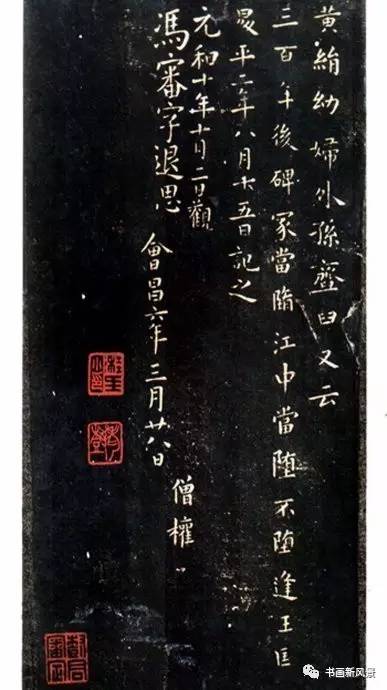 黃絹幼婦外孫齏臼又云
三百年後碑冢當隨江中當堕不堕逢王叵
昇平二年八月十五日記之
元和十年十月二日觀
馮審字退思
會昌六年三月廿八日
僧權
书画新风景